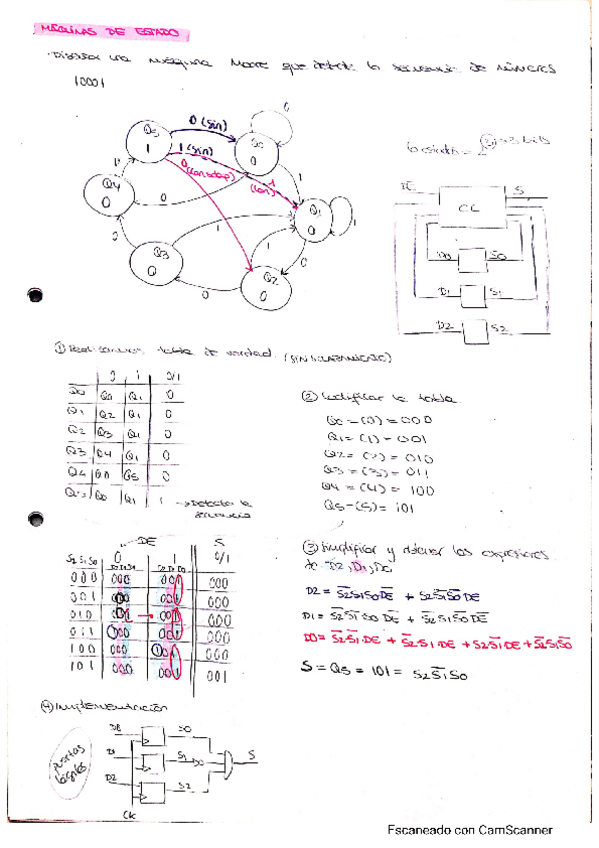 MÁQUINAS DE ESTADO
Diseñar una máquina Moore que detecte la secuencia de números
10001
0
Q5
1
0 (sin)
Q0
0
1 (sin)
0 (con solap)
1
(con)
1
0
Q4
0
0
Q1
0
1
1
0
Q3
0
1
0
0
Q2
0
0
6 estados = 2³ = 3 bits
DE
CL
S
D0
S0
D1
S1
D2
S2
① Realizamos tabla de verdad. (SIN SOLAPAMIENTO)
0 1 0/1
Q0 Q0 Q1 0
Q1 Q2 Q1 0
Q2 Q3 Q1 0
Q3 Q4 Q1 0
Q4 Q0 Q5 0
Q5 Q0 Q1 1 → Detecta la
secuencia
② Codificar la tabla
Q0 - (0) = 000
Q1 = (1) - 001
Q2 = (2) = 010
Q3 = (3) = 011
Q4 = (4) = 100
Q5 - (5) = 101
DE S
S2 S1 S0 0 1 0/1
000 000 001 000
001 001 000
010 001 000
011 000
100 000 000
101 000 001 001
③ Simplificar y obtener las expresiones
de D2, D1, D0
D2 = S̅2S1S0D̅E̅ + S2S̅1S̅0DE
S = Q5 = 101 = S2S̅1S0
④ Implementación
puertas
lógicas
D0
S0
D1
S1
D2
S2
S
Clk
Escaneado con CamScanner